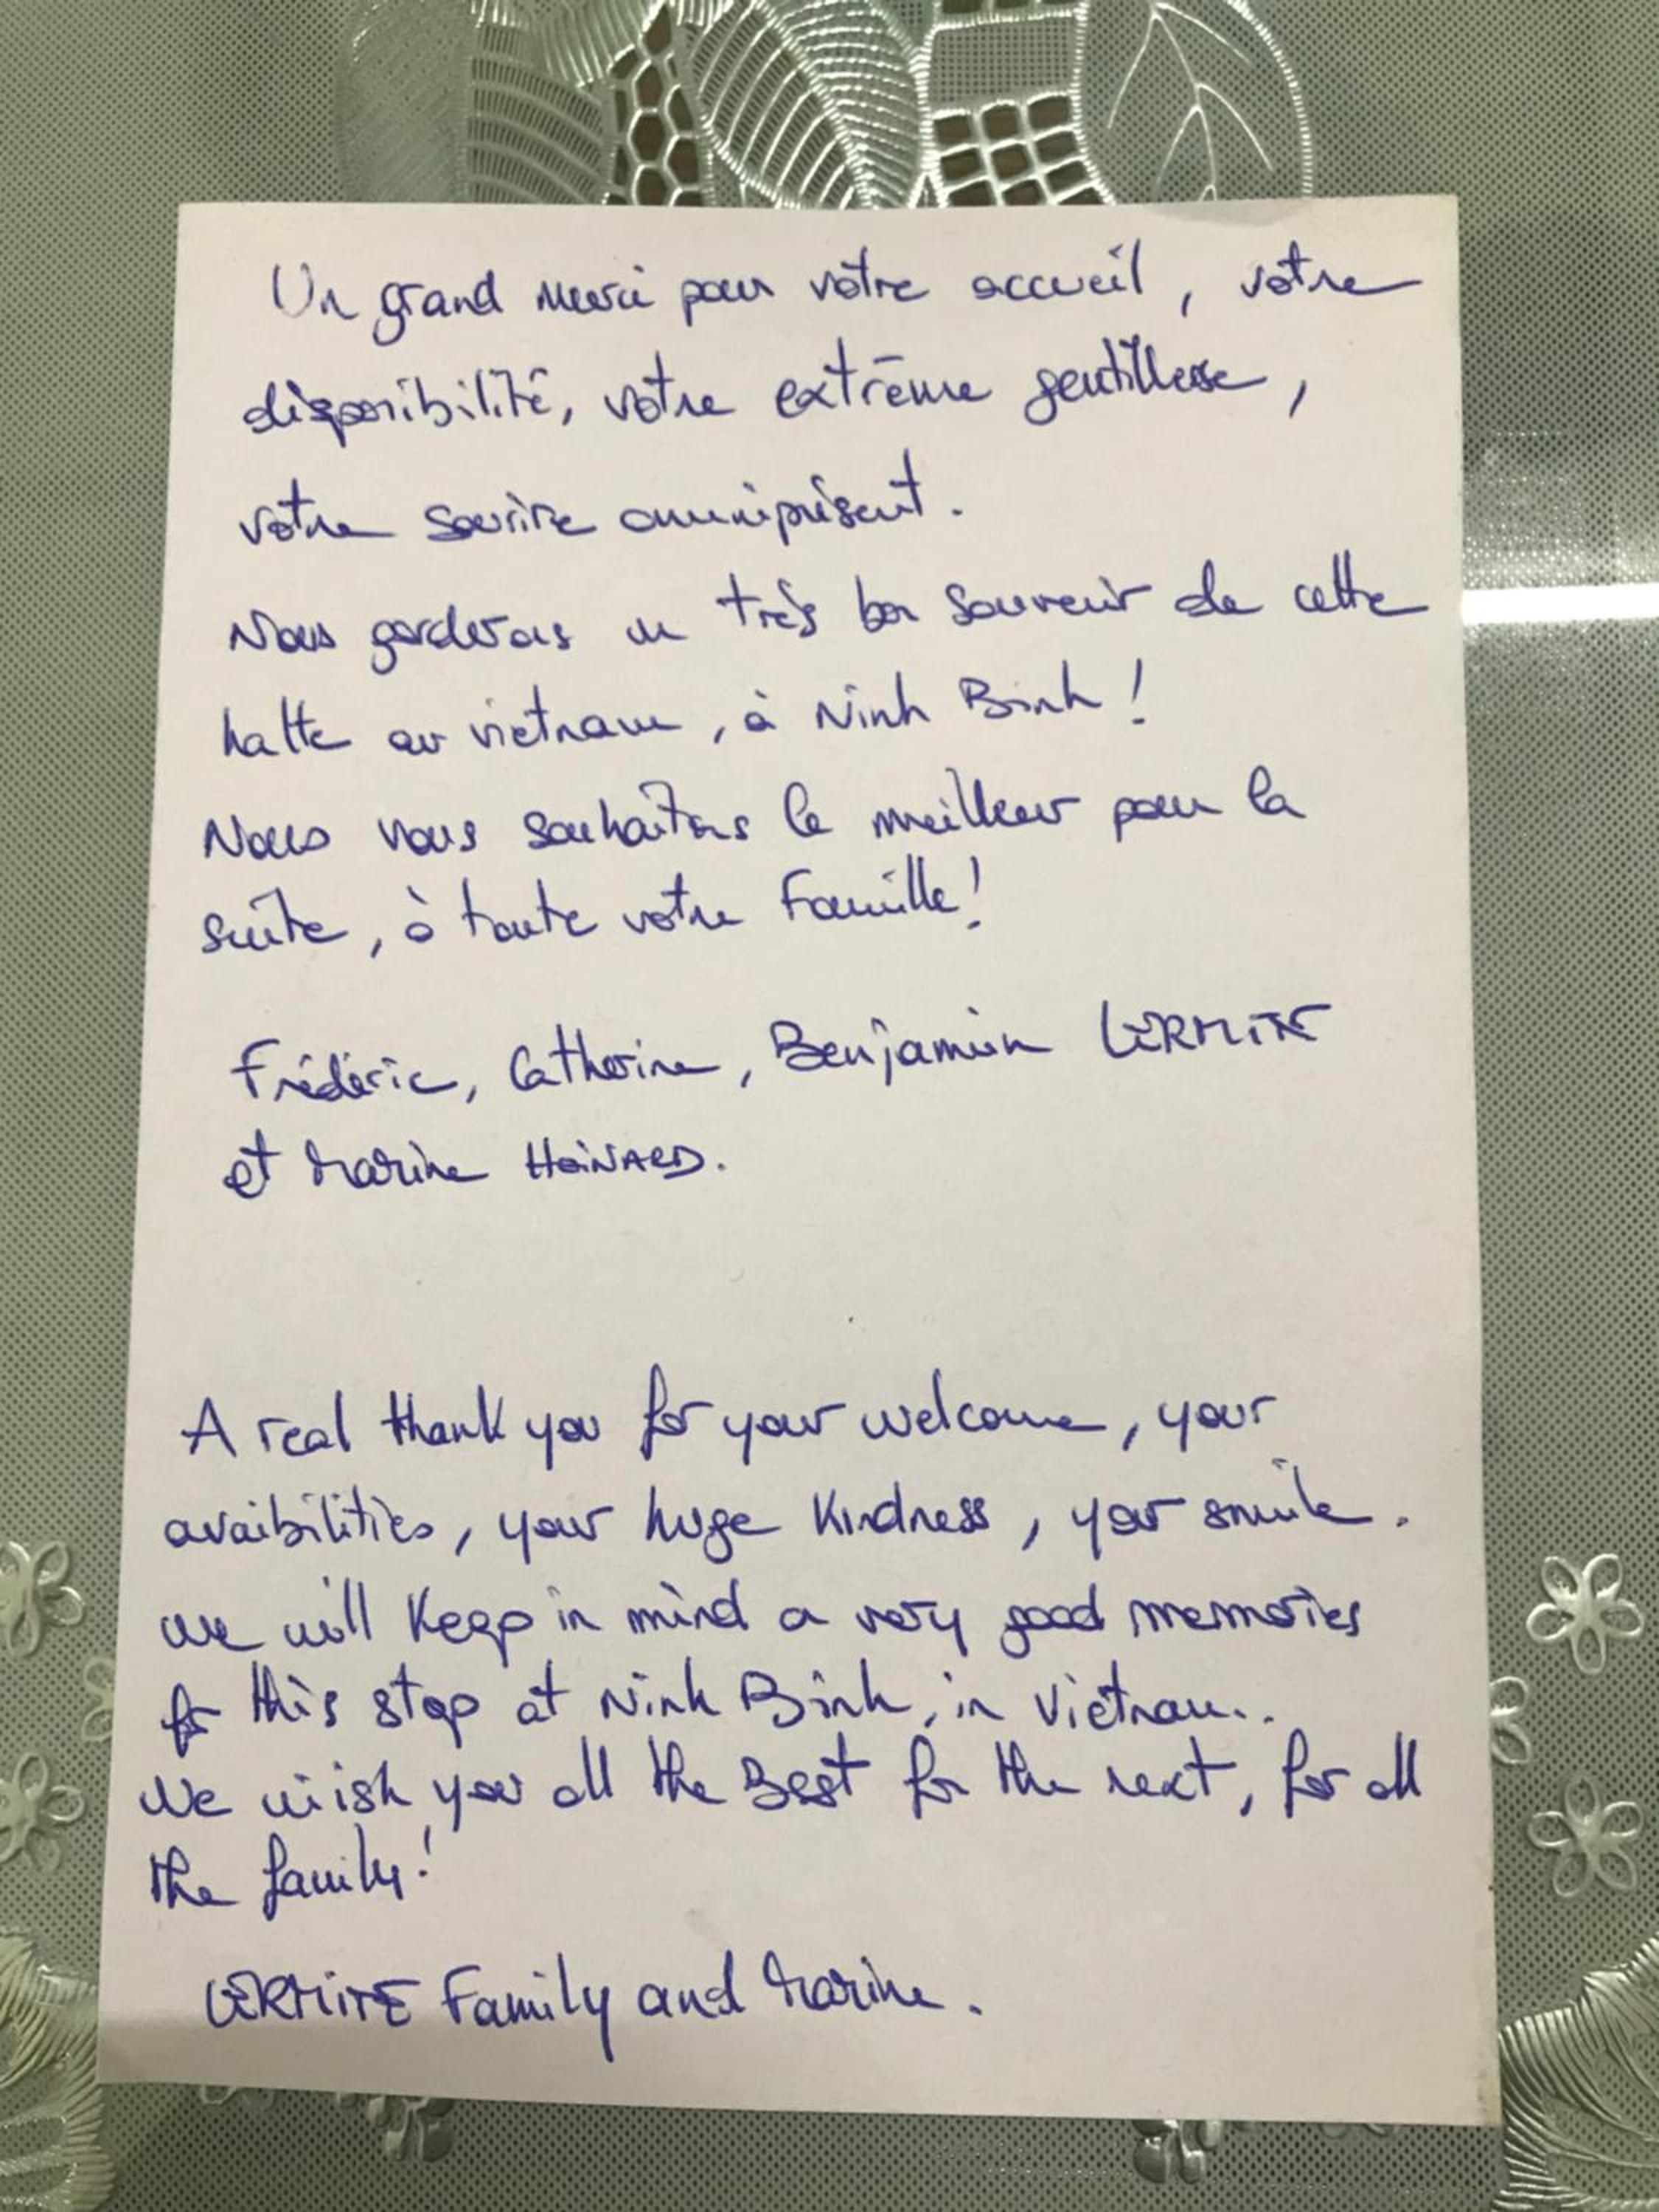 Un grand merci pour votre accueil, votre
disponibilité, votre extrême gentillesse,
votre sourire omniprésent.
Nous garderons un très bon souvenir de cette
halte au vietnam, à Ninh Binh!
Nous vous souhaitons le meilleur pour la
suite, à toute votre Famille!
Frédéric, Catherine, Benjamin LERMITE
et Marine HOINARD.
A real thank you for your welcome, your
avaibilities, your huge Kindness, your smile.
we will Keep in mind a very good memories
for this stop at Ninh Binh, in Vietnam..
We wish you all the Best for the next, for all
the family!
LERMITE Family and Marine.